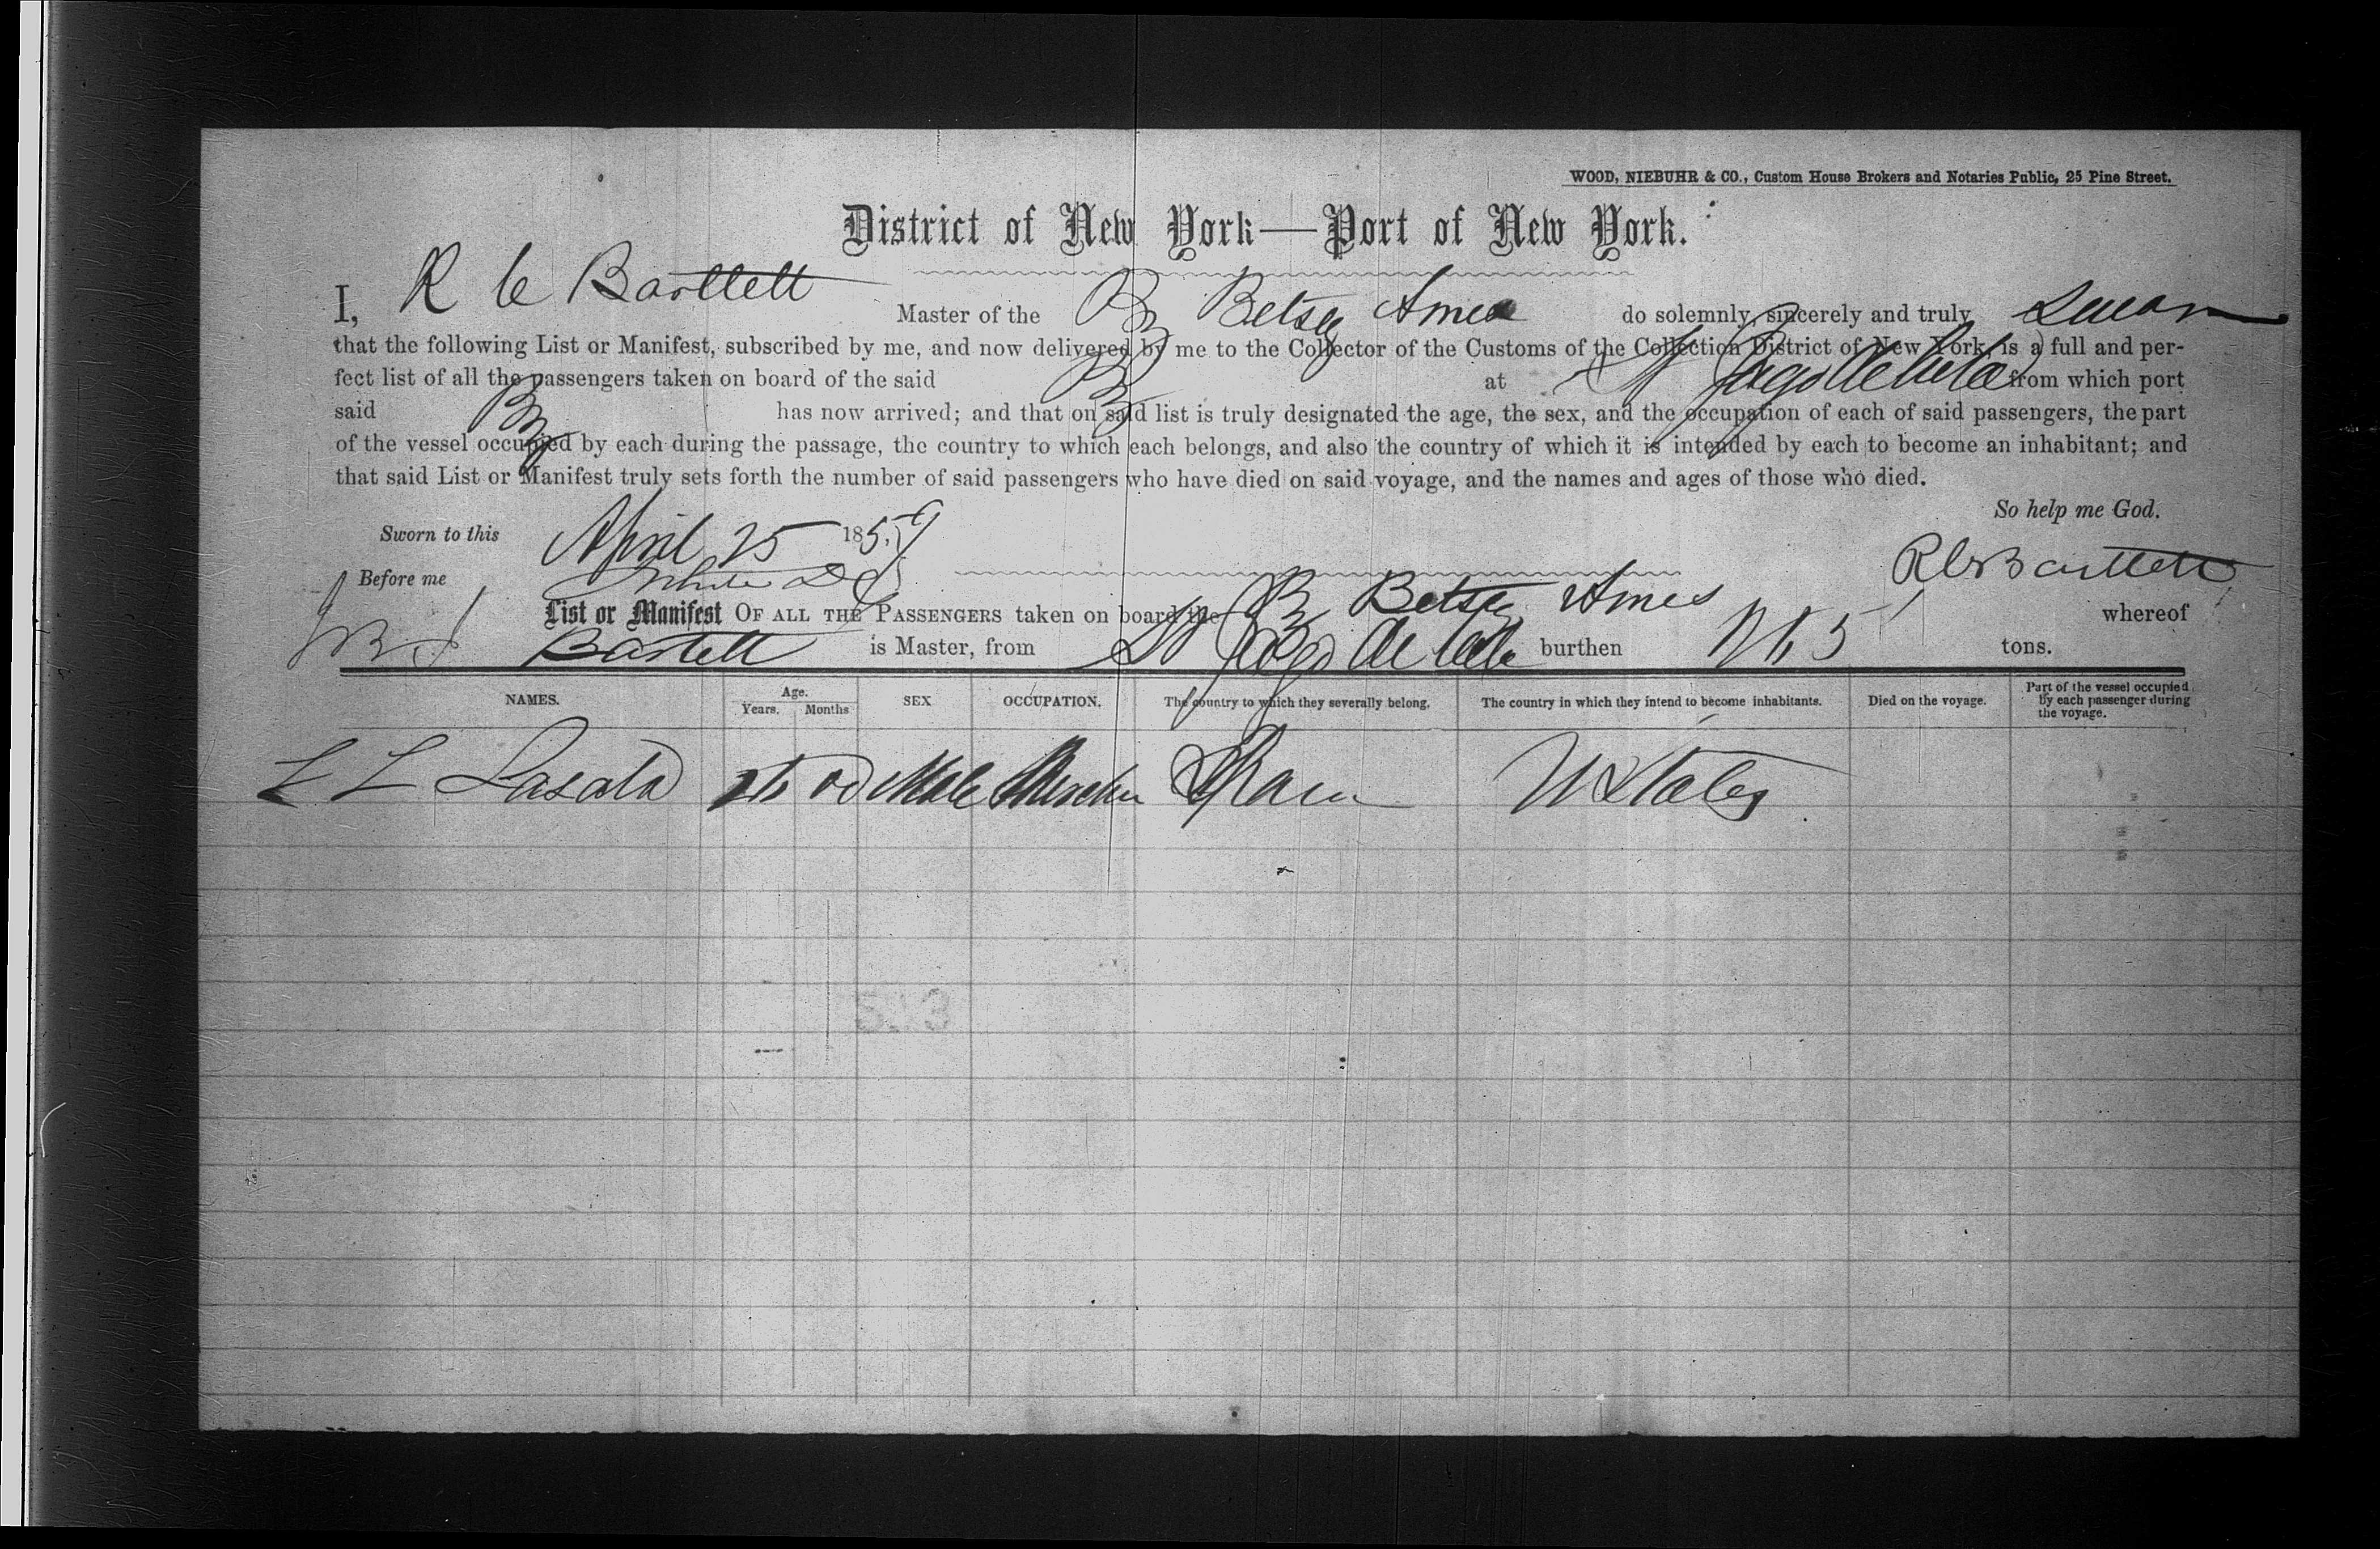 WOOD, NIEBUHR & CO., Custom House Brokers and Notaries Public, 25 Pine Street.
District of New York—Port of New York.
I, R C Bartlett Master of the Br Betsey Ames do solemnly, sincerely and truly Swear
that the following List or Manifest, subscribed by me, and now delivered by me to the Collector of the Customs of the Collection District of New York, is a full and per-
fect list of all the passengers taken on board of the said Br at St Jago de Cuba from which port
said Br has now arrived; and that on said list is truly designated the age, the sex, and the occupation of each of said passengers, the part
of the vessel occupied by each during the passage, the country to which each belongs, and also the country of which it is intended by each to become an inhabitant; and
that said List or Manifest truly sets forth the number of said passengers who have died on said voyage, and the names and ages of those who died.
So help me God.
Sworn to this April 25 1859
Before me R C Bartlett
List or Manifest OF ALL THE PASSENGERS taken on board the Br Betsey Ames whereof
Bartlett is Master, from St Jago de burthen tons.
NAMES. Age. Years. Months SEX OCCUPATION. The country to which they severally belong. The country in which they intend to become inhabitants. Died on the voyage. Part of the vessel occupied by each passenger during the voyage.
Male Spain U States